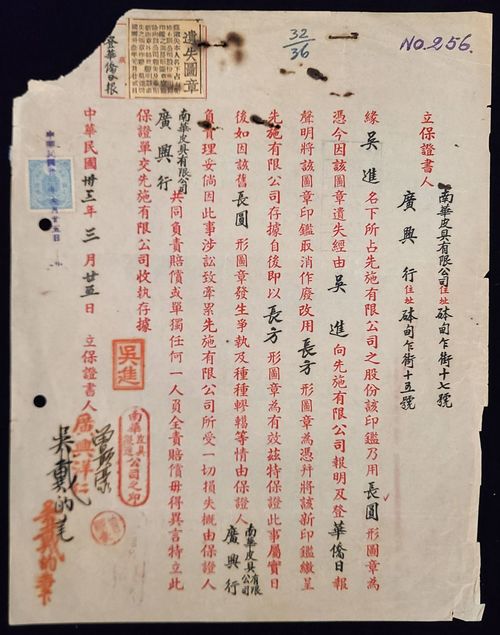 32/36
No. 256.
遺失圖章
登華僑日報
立保證書人 南華皮具有限公司 住址 砵甸乍街十七號
廣興行 住址 砵甸乍街十五號
緣 吳進 名下所占先施有限公司之股份該印鑑乃用 長圓 形圖章為
憑今因該圖章遺失經由 吳進 向先施有限公司報明及登 華僑日 報
聲明將該圖章印鑑取消作廢改用 長方 形圖章為憑幷將該新印鑑繳呈
先施有限公司存據自後即以 長方 形圖章為有效茲特保證此事屬實日
後如因該舊 長圓 形圖章發生爭執及種種轇轕等情由保證人 南華皮具有限公司 廣興行
負責理妥倘因此事涉訟致牽累先施有限公司所受一切損失概由保證人
南華皮具有限公司 廣興行 共同負責賠償或單獨任何一人員全責賠償毋得異言特立此
保證單交先施有限公司收執存據
吳進
中華民國 卅三 年 三 月 廿五 日 立保證書人
南華皮具有限公司之印
廣興洋行